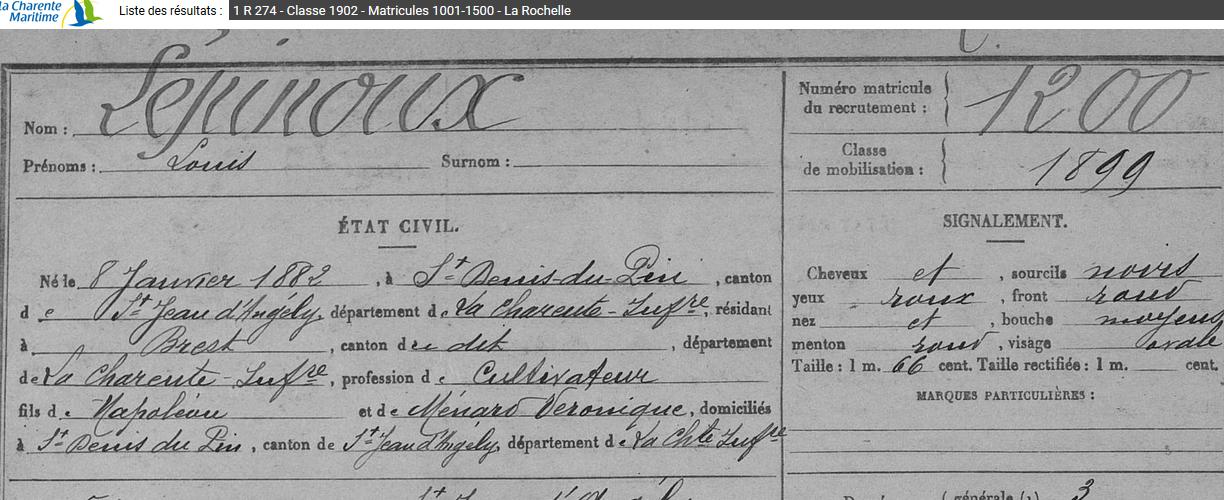 la Charente
Maritime
Liste des résultats : 1 R 274 - Classe 1902 - Matricules 1001-1500 - La Rochelle
Nom : Lépinoux
Numéro matricule du recrutement : 1200
Prénoms : Louis Surnom :
Classe de mobilisation : 1899
ÉTAT CIVIL.
Né le 8 Janvier 1882, à St Denis-du-Pin, canton
de St Jean d'Angély, département de La Charente-Infre, résidant
à Brest, canton du dit, département
de La Charente Infre, profession de Cultivateur
fils de Napoléon et de Ménard Véronique, domiciliés
à St Denis du Pin, canton de St Jean d'Angély, département de La Chte Infre
SIGNALEMENT.
Cheveux et, sourcils noirs
yeux roux, front rond
nez et, bouche moyens
menton rond, visage ovale
Taille : 1 m. 66 cent. Taille rectifiée : 1 m. cent.
MARQUES PARTICULIÈRES :
générale (1) 3